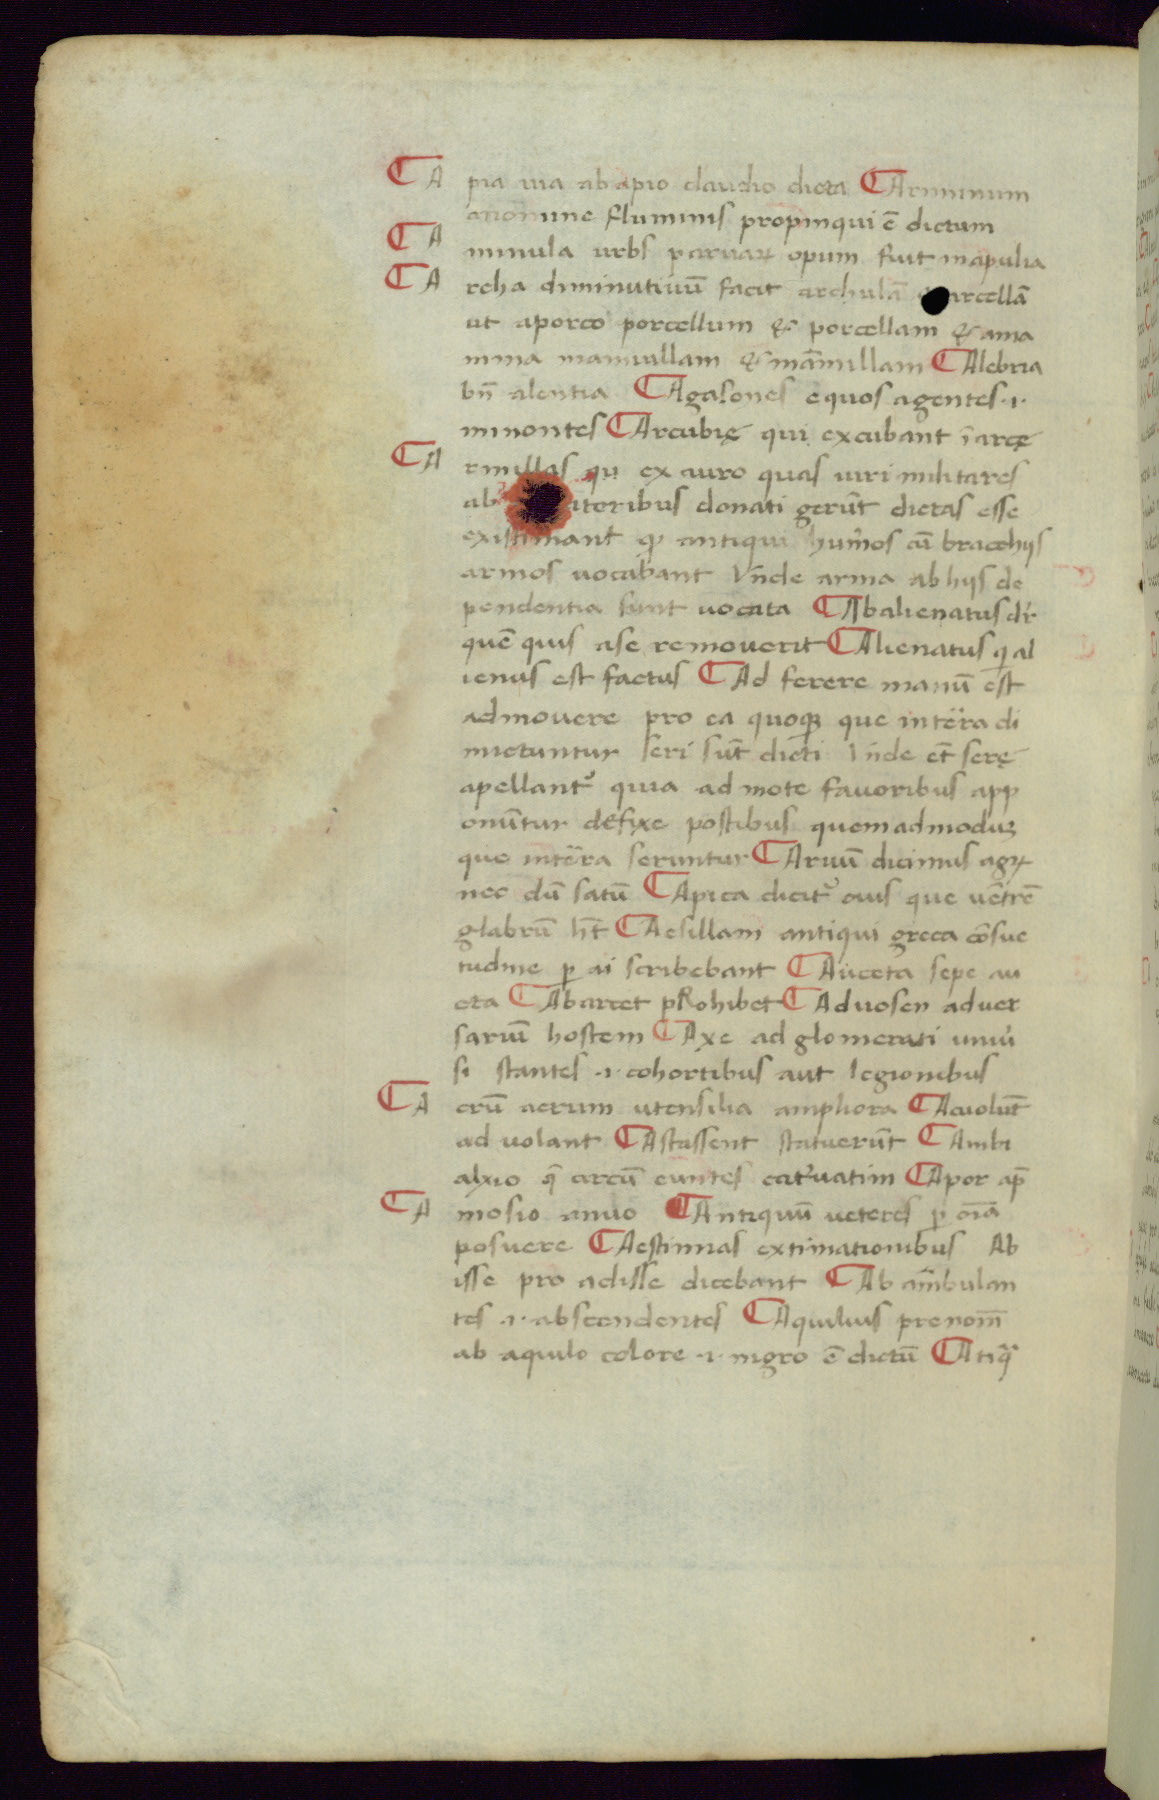 ¶ A pia uia ab apio claudio dicta ¶ Ariminum
a nomine fluminis propinqui ē dictum
¶ A minula urbs paruaꝝ opum fuit in apulia
¶ A rcha diminutiuū facit archulā arcellā
ut aporco porcellum & porcellam & ama
mma mamullam & māmillam ¶ Alebria
bn̄ alentia ¶ Agasones equos agentes ·i·
minontes ¶ Arcubię qui excubant ī arcę
¶ A rmillas qu ex auro quas uiri militares
ab itoribus donati gerūt dictas esse
existimant ꝙ antiqui hum̄os cū bracchijs
armos uocabant Vn̄de arma ab hijs de
pendentia sunt uocata ¶ Abalienatus dr̄
quē quis ase remouerit ¶ Alienatus q̄ al
ienus est factus ¶ Ad ferere manū est
admouere pro ea quoqꝫ que intēra di
mictuntur seri sūt dicti Vn̄de et̄ serę
apellantᷣ quia ad mote fauoribus app
onūtur defixe postibus quemadmoduꝫ
que intēra seruntur ¶ Aruū dicimus agꝝ
nec dū satū ¶ Apica dicitᷣ ouis que uētrē
glabrū ht̄ ¶ Aesillam antiqui greca cōsue
tudine ꝑ ai scribebant ¶ Auceta sepe au
cta ¶ Abarcet pRohibet ¶ Aduosen aduer
sariū hostem ¶ Axe ad glomerati uniu̓
si stantes ·i· cohortibus aut legionibus
¶ A erū aerum utensilia amphora ¶ Aeuolūt
ad uolant ¶ Astassent statuerūt ¶ Ambi
alxio q̄ circū euntes catᷣuatim ¶ Apor ap̄
¶ A mosio anuo ¶ Antiquū ueteres ꝑ oīa
posuere ¶ Aestimias extimationibus Ab
isse pro adisse dicebant ¶ Ab am̄bulan
tes ·i· abscendentes ¶ Aquilius prenom̄
ab aquilo colore ·i· nigro ē dictū ¶ Atiq̄